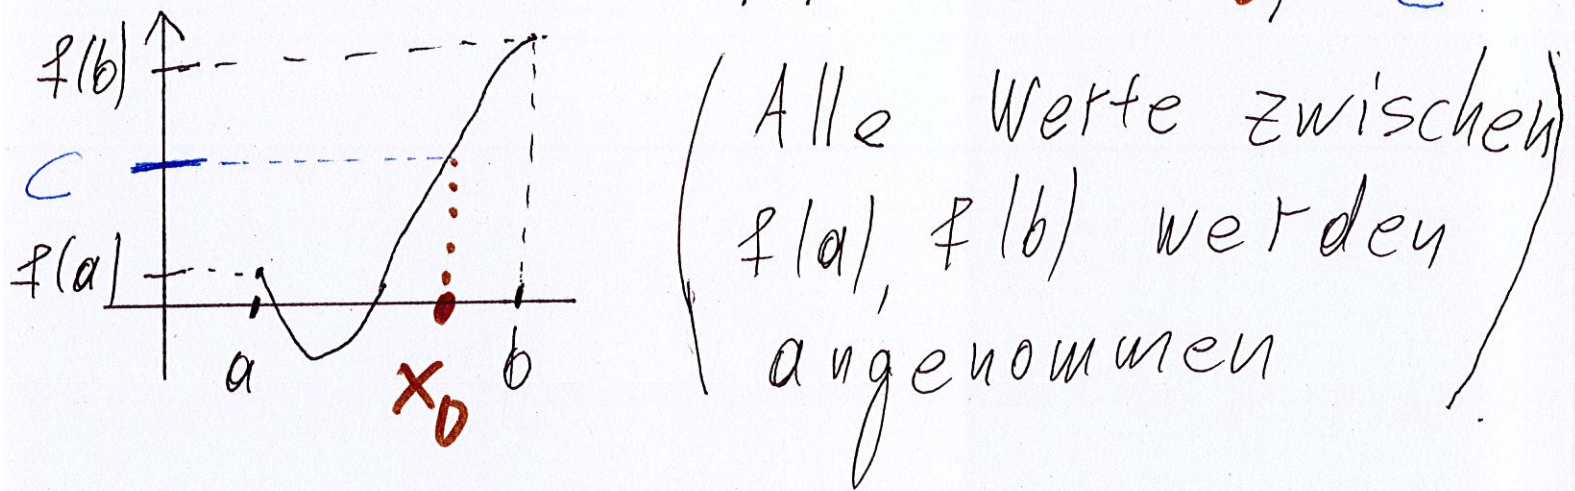 f(b)
C
f(a)
a
x0
b
(Alle Werte zwischen
f(a), f(b) werden
angenommen)